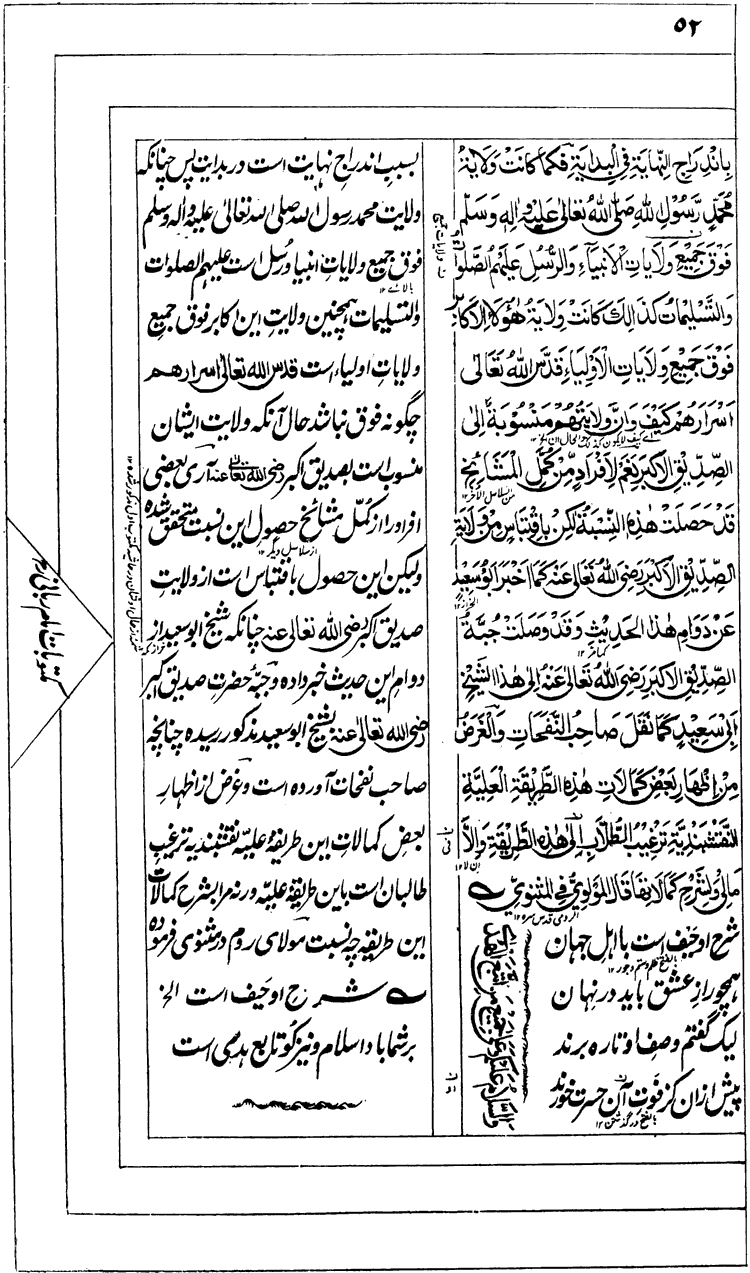 ٥٢
بِانْدِرَاجِ النِّهَايَةِ فِي الْبِدَايَةِ فَكَمَا كَانَتْ وَلَايَةُ
مُحَمَّدٍ رَسُولِ اللهِ صَلَّى اللهُ تَعَالٰى عَلَيْهِ وَاٰلِهٖ وَسَلَّمَ
فَوْقَ جَمِيْعِ وَلَايَاتِ الْاَنْبِيَآءِ وَالرُّسُلِ عَلَيْهِمُ الصَّلَوَاتُ
وَالتَّسْلِيْمَاتُ كَذَالِكَ كَانَتْ وَلَايَةُ هٰؤُلَاءِ الْاَكَابِرِ
فَوْقَ جَمِيْعِ وَلَايَاتِ الْاَوْلِيَاءِ قَدَّسَ اللهُ تَعَالٰى
اَسْرَارَهُمْ كَيْفَ وَاِنَّ وِلَايَتَهُمْ مَنْسُوْبَةٌ اِلٰى
الصِّدِّيْقِ الْاَكْبَرِ نَعَمْ لِاَفْرَادٍ مِّنْ كُمَّلِ الْمَشَائِخِ
قَدْ حَصَلَتْ هٰذِهِ النِّسْبَةُ لٰكِنْ بِاقْتِبَاسٍ مِنْ وَلَايَةِ
الصِّدِّيْقِ الْاَكْبَرِ رَضِيَ اللهُ تَعَالٰى عَنْهُ كَمَا اَخْبَرَ اَبُوْ سَعِيْدٍ
عَنْ دَوَامِ هٰذَا الْحَدِيْثِ وَقَدْ وَصَلَتْ جُبَّةُ
الصِّدِّيْقِ الْاَكْبَرِ رَضِيَ اللهُ تَعَالٰى عَنْهُ اِلٰى هٰذَا الشَّيْخِ
اَبِيْ سَعِيْدٍ كَمَا نَقَلَ صَاحِبُ النَّفَحَاتِ وَالْغَرَضُ
مِنْ اِظْهَارِ بَعْضِ كَمَالَاتِ هٰذِهِ الطَّرِيْقَةِ الْعَلِيَّةِ
النَّقْشَبَنْدِيَّةِ تَرْغِيْبُ الطُّلَّابِ اِلٰى هٰذِهِ الطَّرِيْقَةِ وَاِلَّا
مَالِيْ وَلِشَرْحِ كَمَالَاتِهَا قَالَ الْمَوْلَوِيُّ فِي الْمَثْنَوِيِّ
شرح او حیف است با اهل جهان
همچو راز عشق باید در نهان
لیک گفتم وصف او تا ره برند
پیش ازان کز فوت آن حسرت خورند
والسلام علیکم وعلی جمیع من اتبع الهدی
بسبب اندراج نهایت است در بدایت پس چنانکه
ولایت محمد رسول الله صلی الله تعالی علیه واله وسلم
فوق جمیع ولایات انبیا و رُسل است علیهم الصلوات
والتسلیمات همچنین ولایت این اکابر فوق جمیع
ولایات اولیاء است قدس الله تعالی اسرارهم
چگونه فوق نباشد حال آنکه ولایت ایشان
منسوب است بصدیق اکبر رضی الله تعالی عنه آری بعضی
افراد را از کُمّل مشائخ حصول این نسبت متحقق شده
از سلاسل دیگر ۱۲
ولیکن این حصول باقتباس است از ولایت
صدیق اکبر رضی الله تعالی عنه چنانکه شیخ ابو سعید از
دوام این حدیث خبر داده و جبّهٔ حضرت صدیق اکبر
رضی الله تعالی عنه بشیخ ابو سعید مذکور رسیده چنانچه
صاحب نفحات آورده است و غرض از اظهار
بعض کمالات این طریقهٔ علیّه نقشبندیه ترغیب
طالبان است باین طریقهٔ علیّه ورنه مرا بشرح کمالات
این طریقه چه نسبت مولای روم در مثنوی فرموده
شرح او حیف است الخ
بر شما باد اسلام و نیز کو تابع هدی است
مکتوبات امام ربانی رح